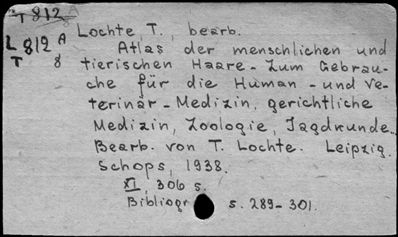 T 812 A
L 812 A
T 8
Lochte, T., bearb.
Atlas der menschlichen und
tierischen Haare - Zum Gebrau-
che für die Human - und Ve-
terinär - Medizin, gerichtliche
Medizin, Zoologie, Jagdkunde.
Bearb. von T. Lochte. Leipzig.
Schops, 1938.
XI, 306 s.
Bibliogr s. 289-301.